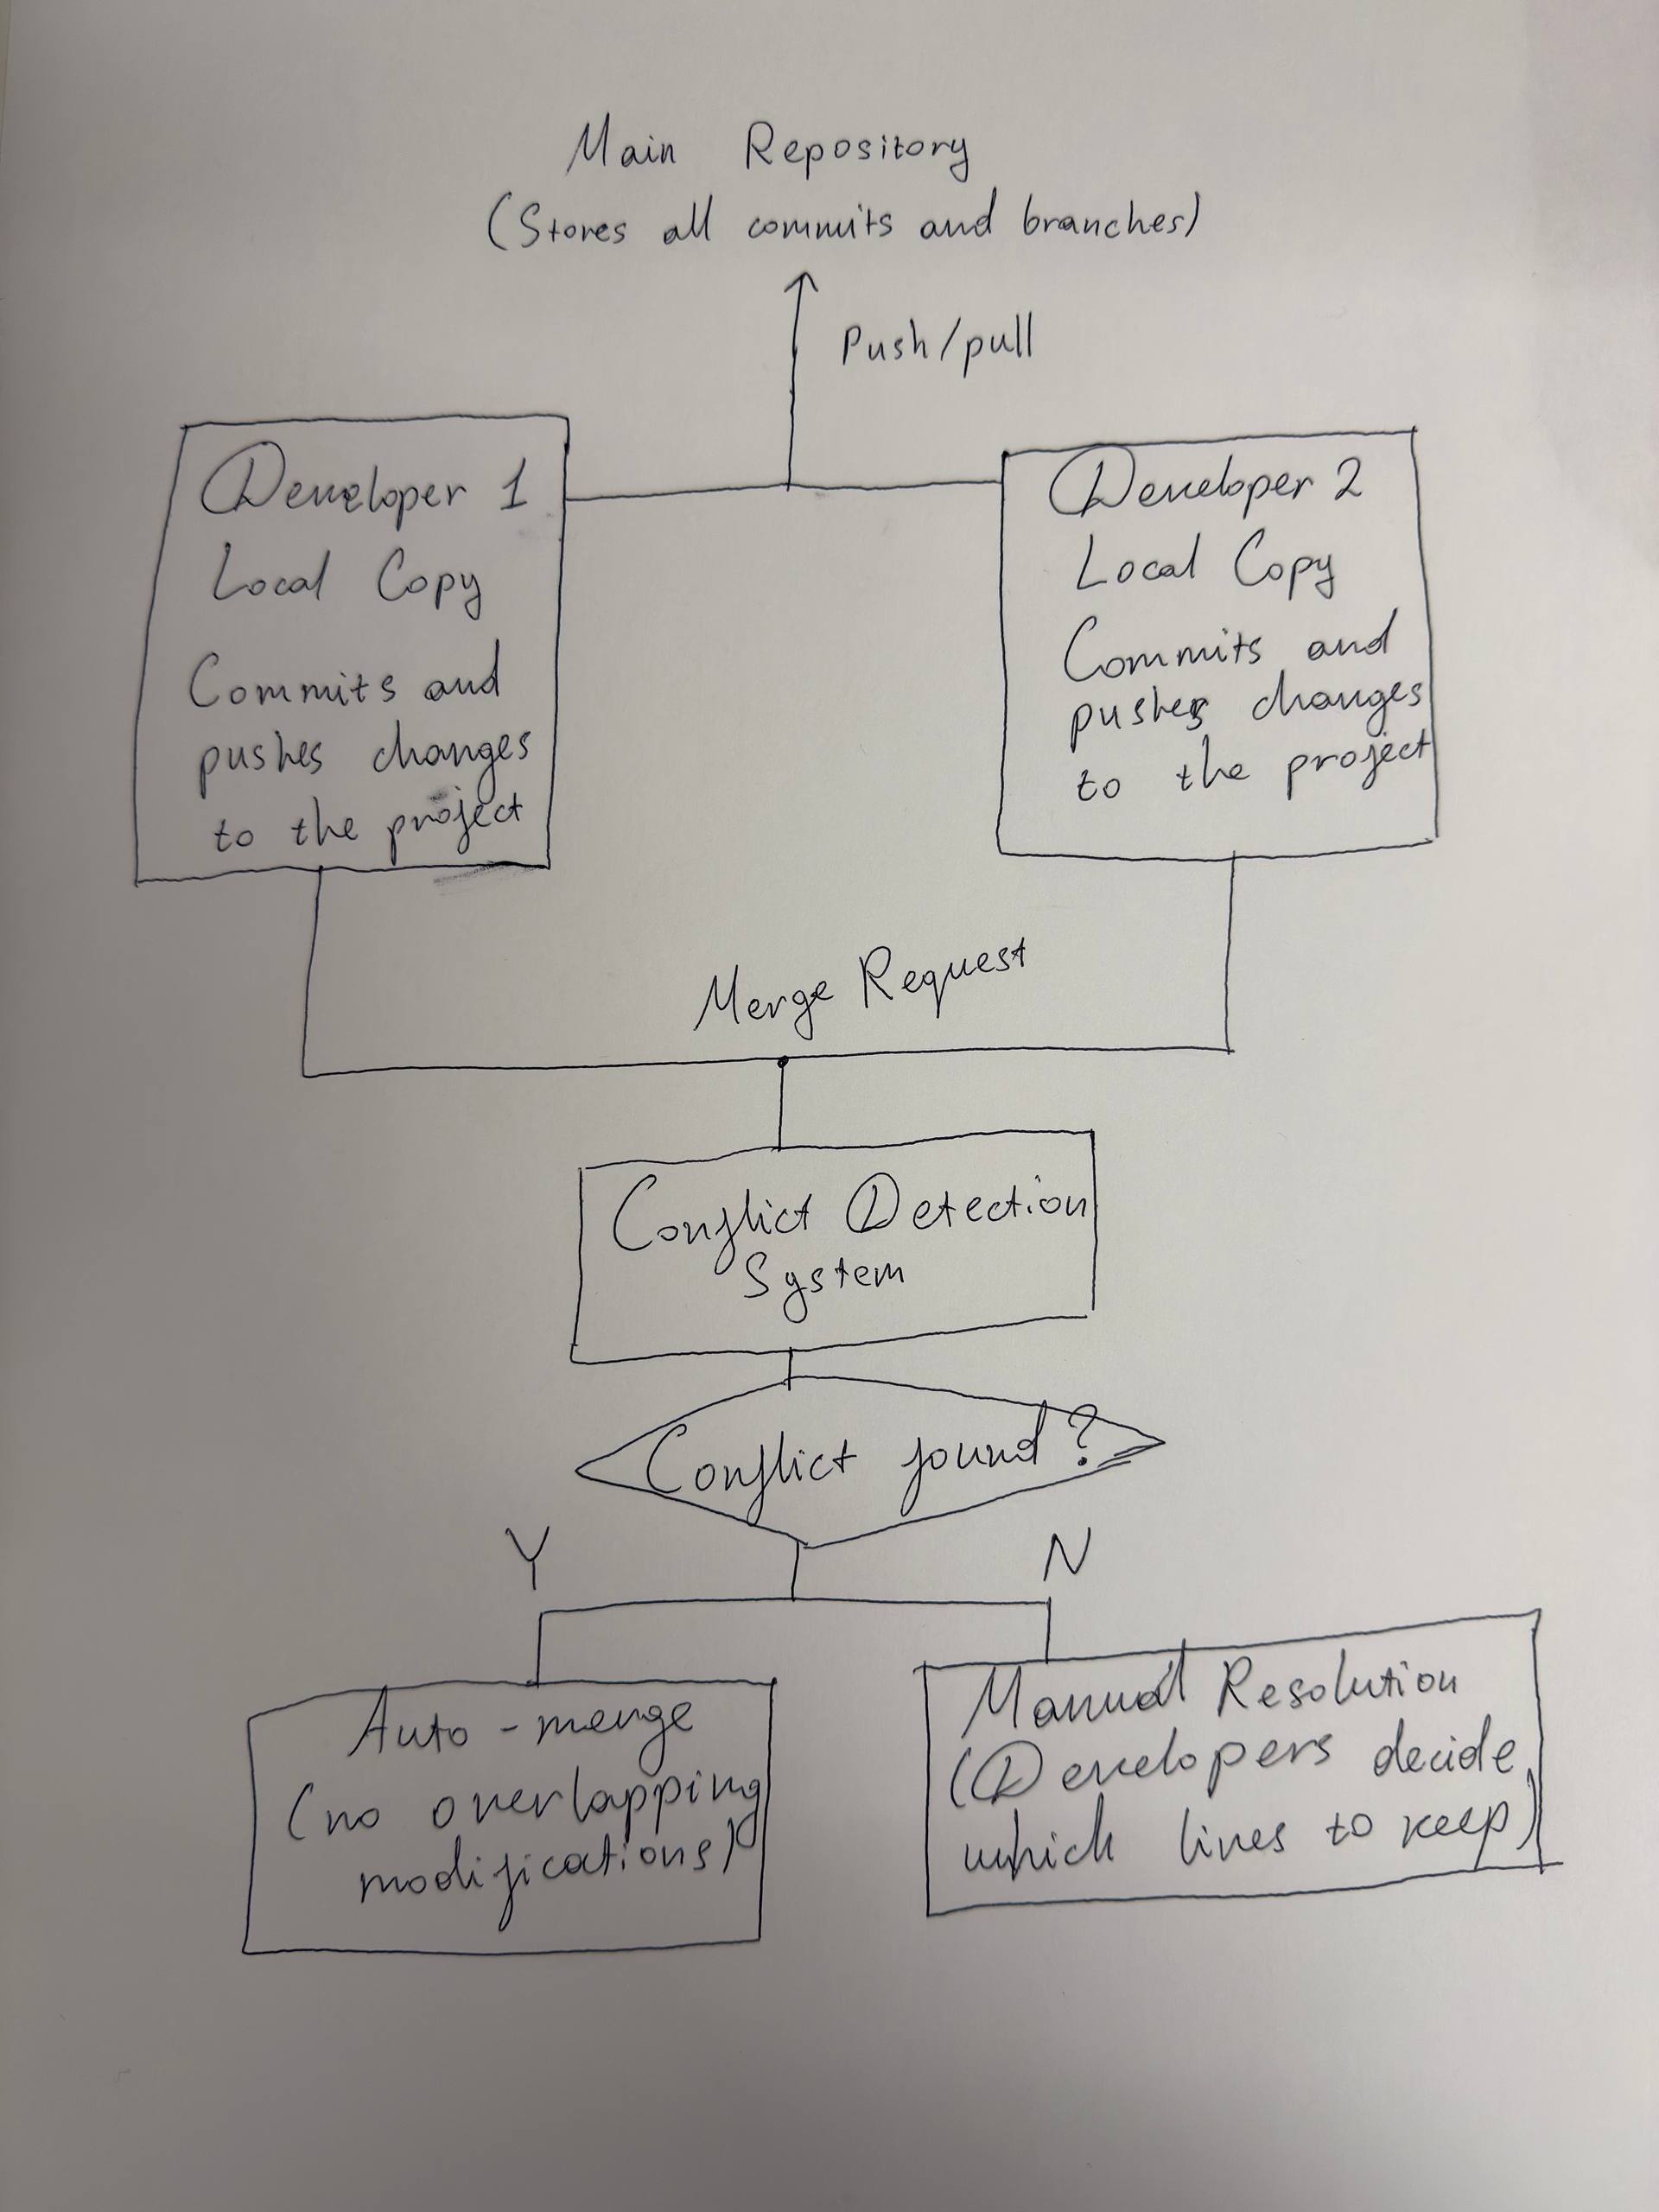 Main Repository
(Stores all commits and branches)
Push/pull
Developer 1
Local Copy
Commits and
pushes changes
to the project
Developer 2
Local Copy
Commits and
pushes changes
to the project
Merge Request
Conflict Detection
System
Conflict found?
Y
N
Auto-merge
(no overlapping
modifications)
Manual Resolution
(Developers decide
which lines to keep)